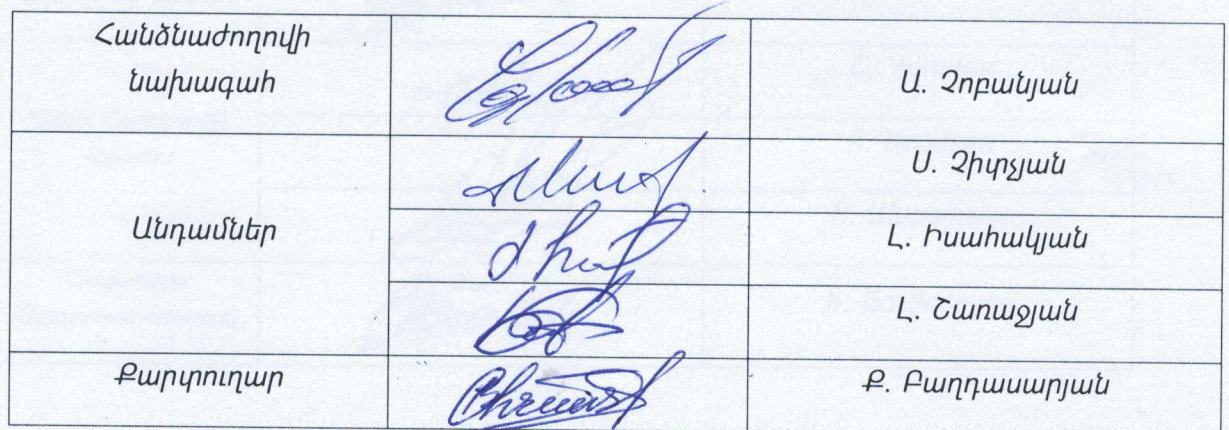 Հանձնաժողովի
նախագահ
Ա. Չոբանյան
Անդամներ
Ս. Չիտչյան
Լ. Իսահակյան
Լ. Շառաջյան
Քարտուղար
Ք. Բաղդասարյան